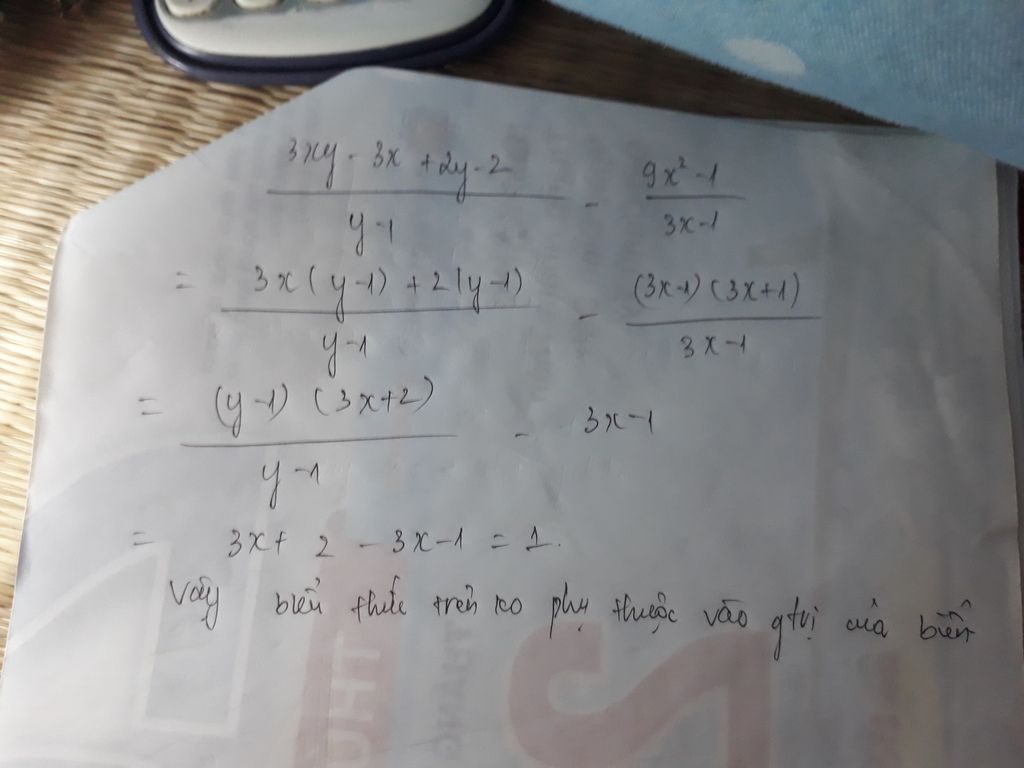 3xy - 3x + 2y - 2 / y - 1 - 9x² - 1 / 3x - 1
= 3x(y - 1) + 2(y - 1) / y - 1 - (3x - 1)(3x + 1) / 3x - 1
= (y - 1)(3x + 2) / y - 1 - 3x - 1
= 3x + 2 - 3x - 1 = 1.
Vậy biểu thức trên ko phụ thuộc vào gtrị của biến